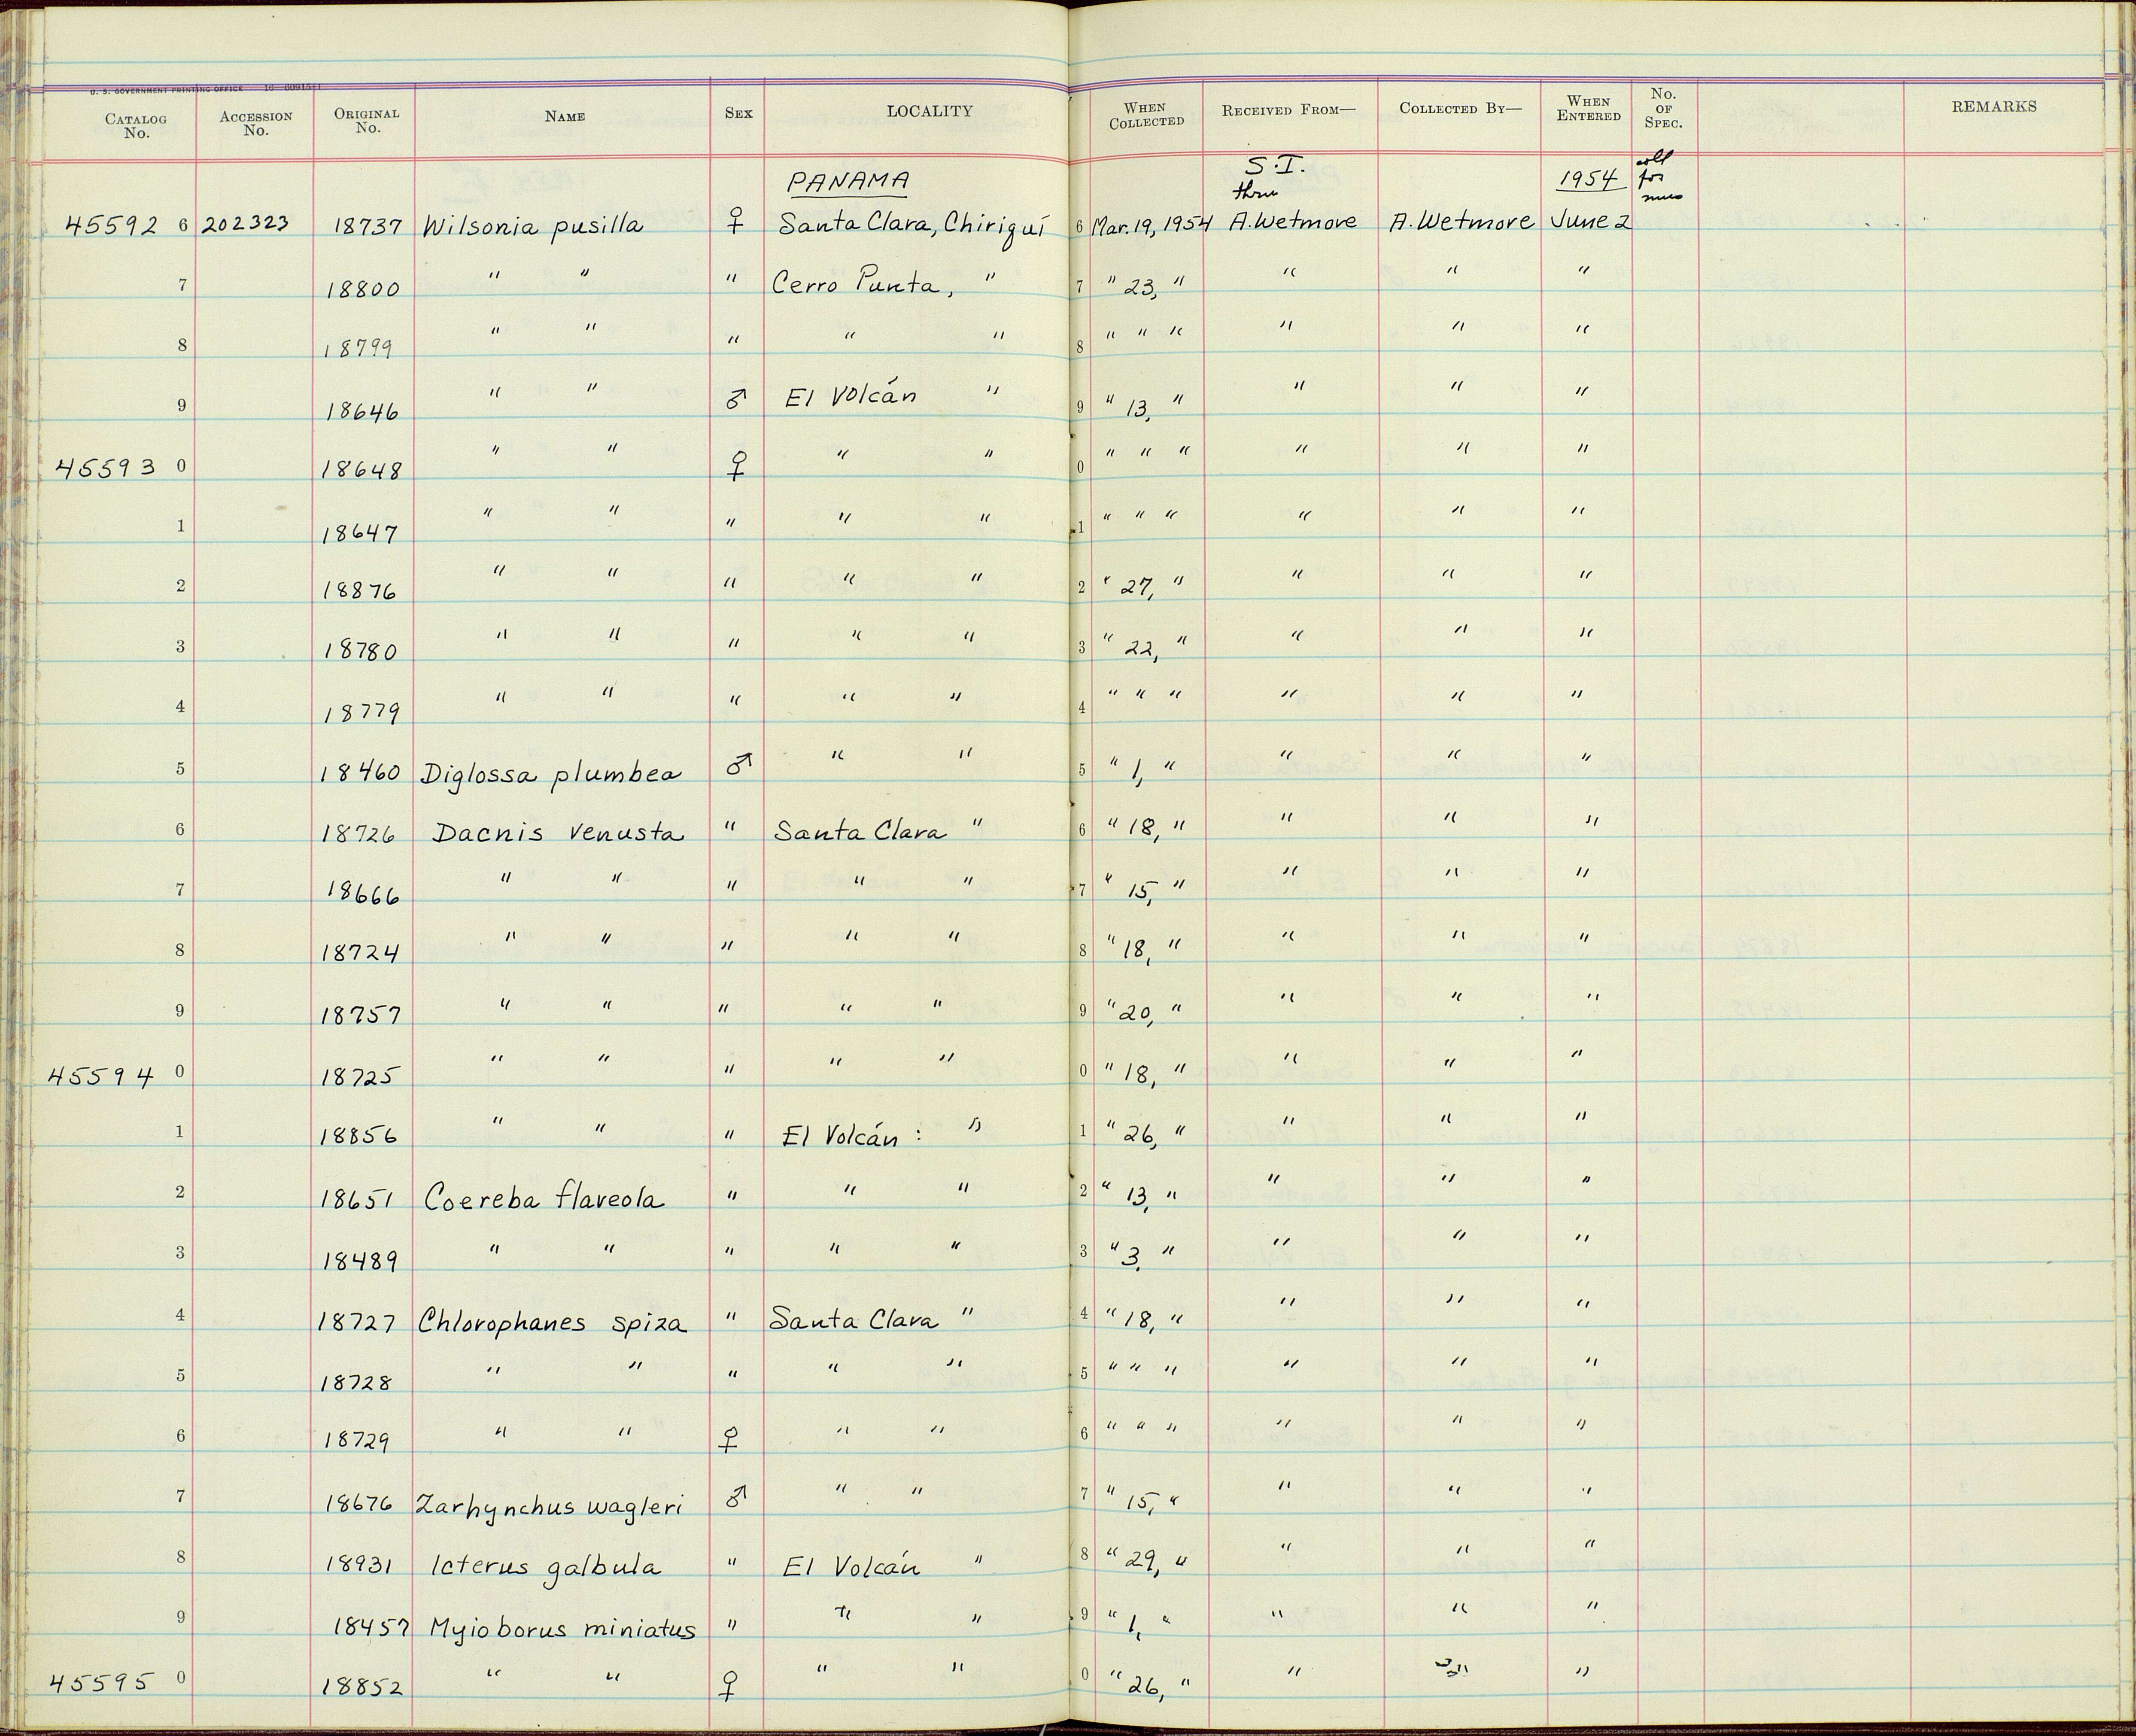 U. S. GOVERNMENT PRINTING OFFICE 16—60915-1
CATALOG No. ACCESSION No. ORIGINAL No. NAME SEX LOCALITY WHEN COLLECTED RECEIVED FROM— COLLECTED BY— WHEN ENTERED No. OF SPEC. REMARKS
PANAMA S.I. thru 1954 for
45592 6 202323 18737 Wilsonia pusilla ♀ Santa Clara, Chiriquí 6 Mar. 19, 1954 A. Wetmore A. Wetmore June 2
7 18800 " " " Cerro Punta, " 7 " 23, " " " "
8 18799 " " " " " 8 " " " " " "
9 18646 " " ♂ El Volcán " 9 " 13, " " " "
45593 0 18648 " " ♀ " " 0 " " " " " "
1 18647 " " " " " 1 " " " " " "
2 18876 " " " " " 2 " 27, " " " "
3 18780 " " " " " 3 " 22, " " " "
4 18779 " " " " " 4 " " " " " "
5 18460 Diglossa plumbea ♂ " " 5 " 1, " " " "
6 18726 Dacnis venusta " Santa Clara " 6 " 18, " " " "
7 18666 " " " " " 7 " 15, " " " "
8 18724 " " " " " 8 " 18, " " " "
9 18757 " " " " " 9 " 20, " " " "
45594 0 18725 " " " " " 0 " 18, " " " "
1 18856 " " " El Volcán : " 1 " 26, " " " "
2 18651 Coereba flaveola " " " 2 " 13, " " " "
3 18489 " " " " " 3 " 3, " " " "
4 18727 Chlorophanes spiza " Santa Clara " 4 " 18, " " " "
5 18728 " " " " " 5 " " " " " "
6 18729 " " ♀ " " 6 " " " " " "
7 18676 Zarhynchus wagleri ♂ " " 7 " 15, " " " "
8 18931 Icterus galbula " El Volcán " 8 " 29, " " " "
9 18457 Myioborus miniatus " " " 9 " 1, " " " "
45595 0 18852 " " ♀ " " 0 " 26, " " " "